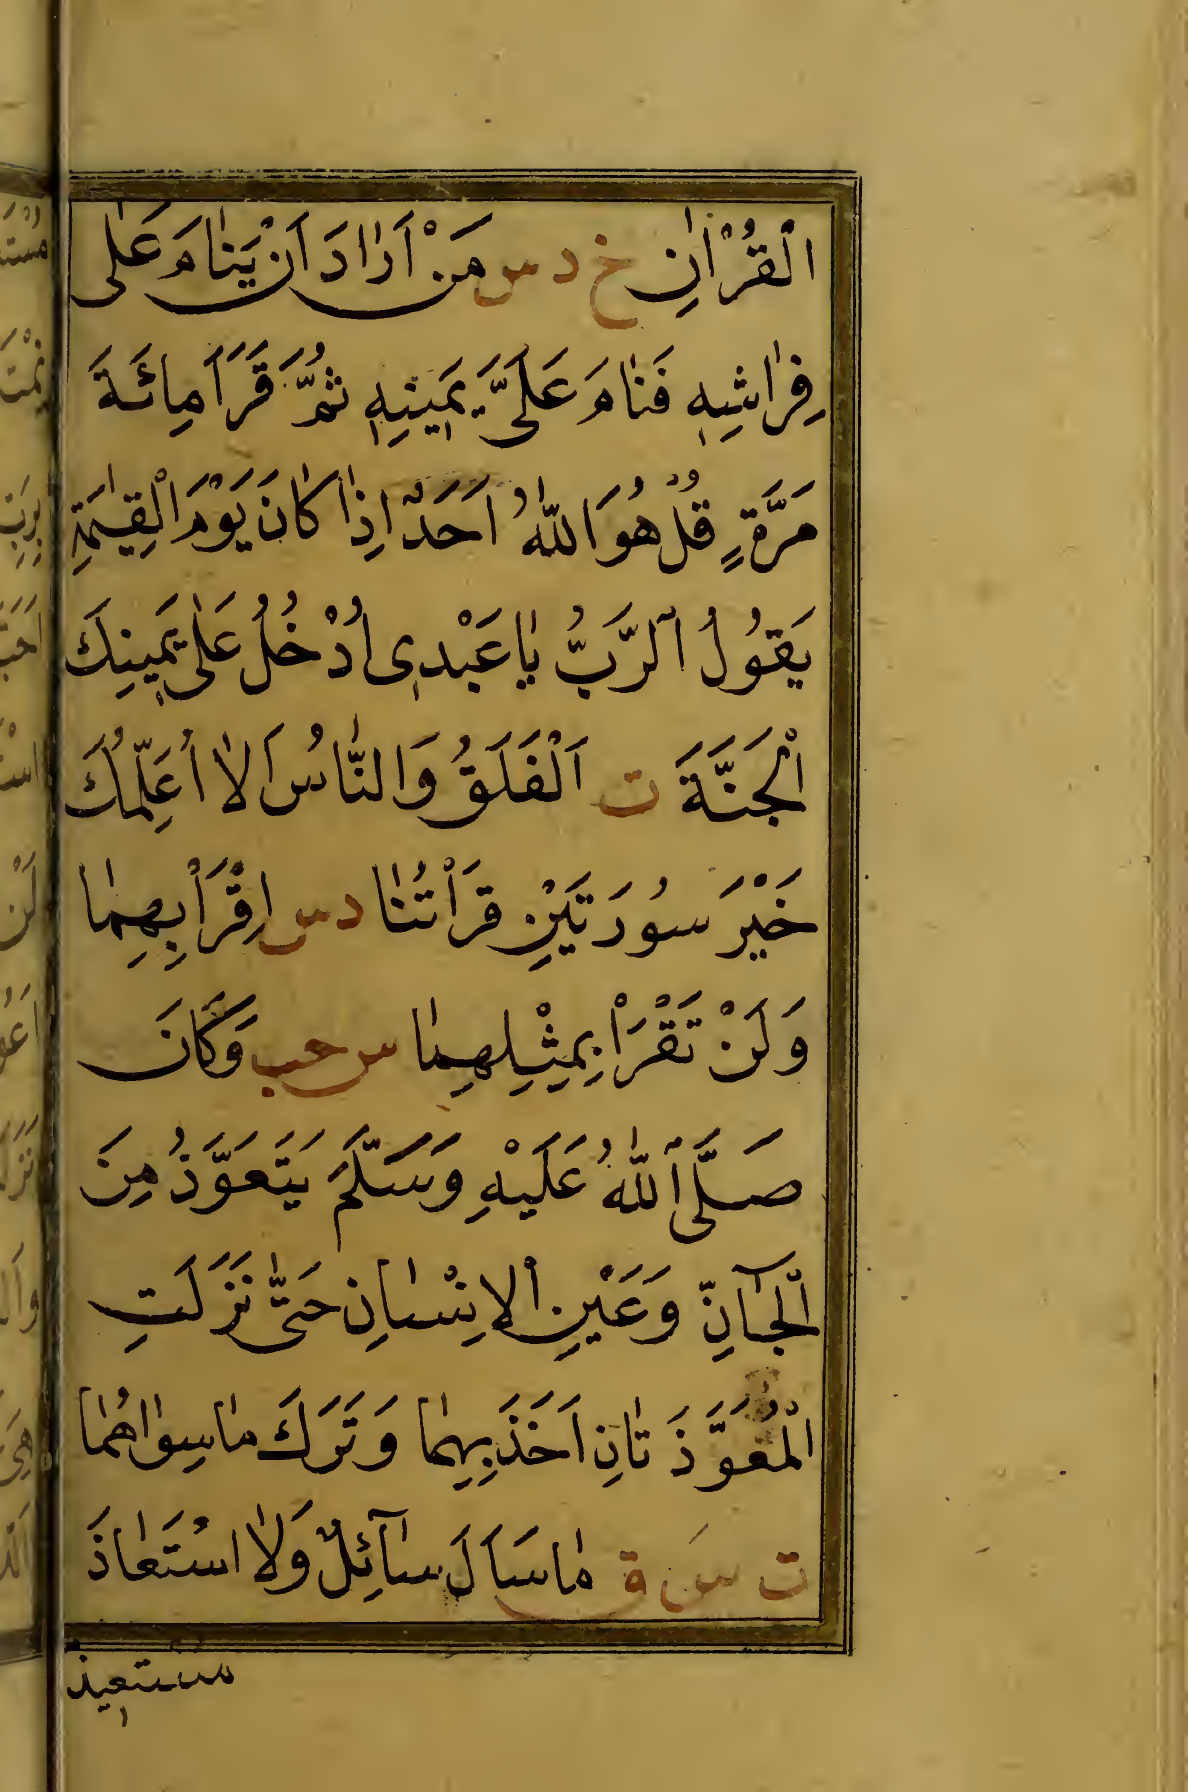 الْقُرْاٰنِ خ د س مَنْ اَرَادَ اَنْ يَنَامَ عَلٰى
فِرَاشِهِ فَنَامَ عَلَى يَمِينِهِ ثُمَّ قَرَأَ مِائَةَ
مَرَّةٍ قُلْ هُوَ اللّٰهُ اَحَدٌ اِذَا كَانَ يَوْمَ الْقِيٰمَةِ
يَقُولُ الرَّبُّ يَا عَبْدِي ادْخُلْ عَلٰى يَمِينِكَ
الْجَنَّةَ ت اَلْفَلَقُ وَالنَّاسُ اَلَا اُعَلِّمُكَ
خَيْرَ سُورَتَيْنِ قَرَأْتُنَا د س اِقْرَأْ بِهِمَا
وَلَنْ تَقْرَأَ بِمِثْلِهِمَا س حب وَكَانَ
صَلَّى اللّٰهُ عَلَيْهِ وَسَلَّمَ يَتَعَوَّذُ مِنَ
الْجَآنِّ وَعَيْنِ الْاِنْسَانِ حَتّٰى نَزَلَتِ
الْمُعَوَّذَتَانِ اَخَذَ بِهِمَا وَتَرَكَ مَا سِوَاهُمَا
ت س ق مَا سَاَلَ سَآئِلٌ وَلَا اسْتَعَاذَ
مستعيذ